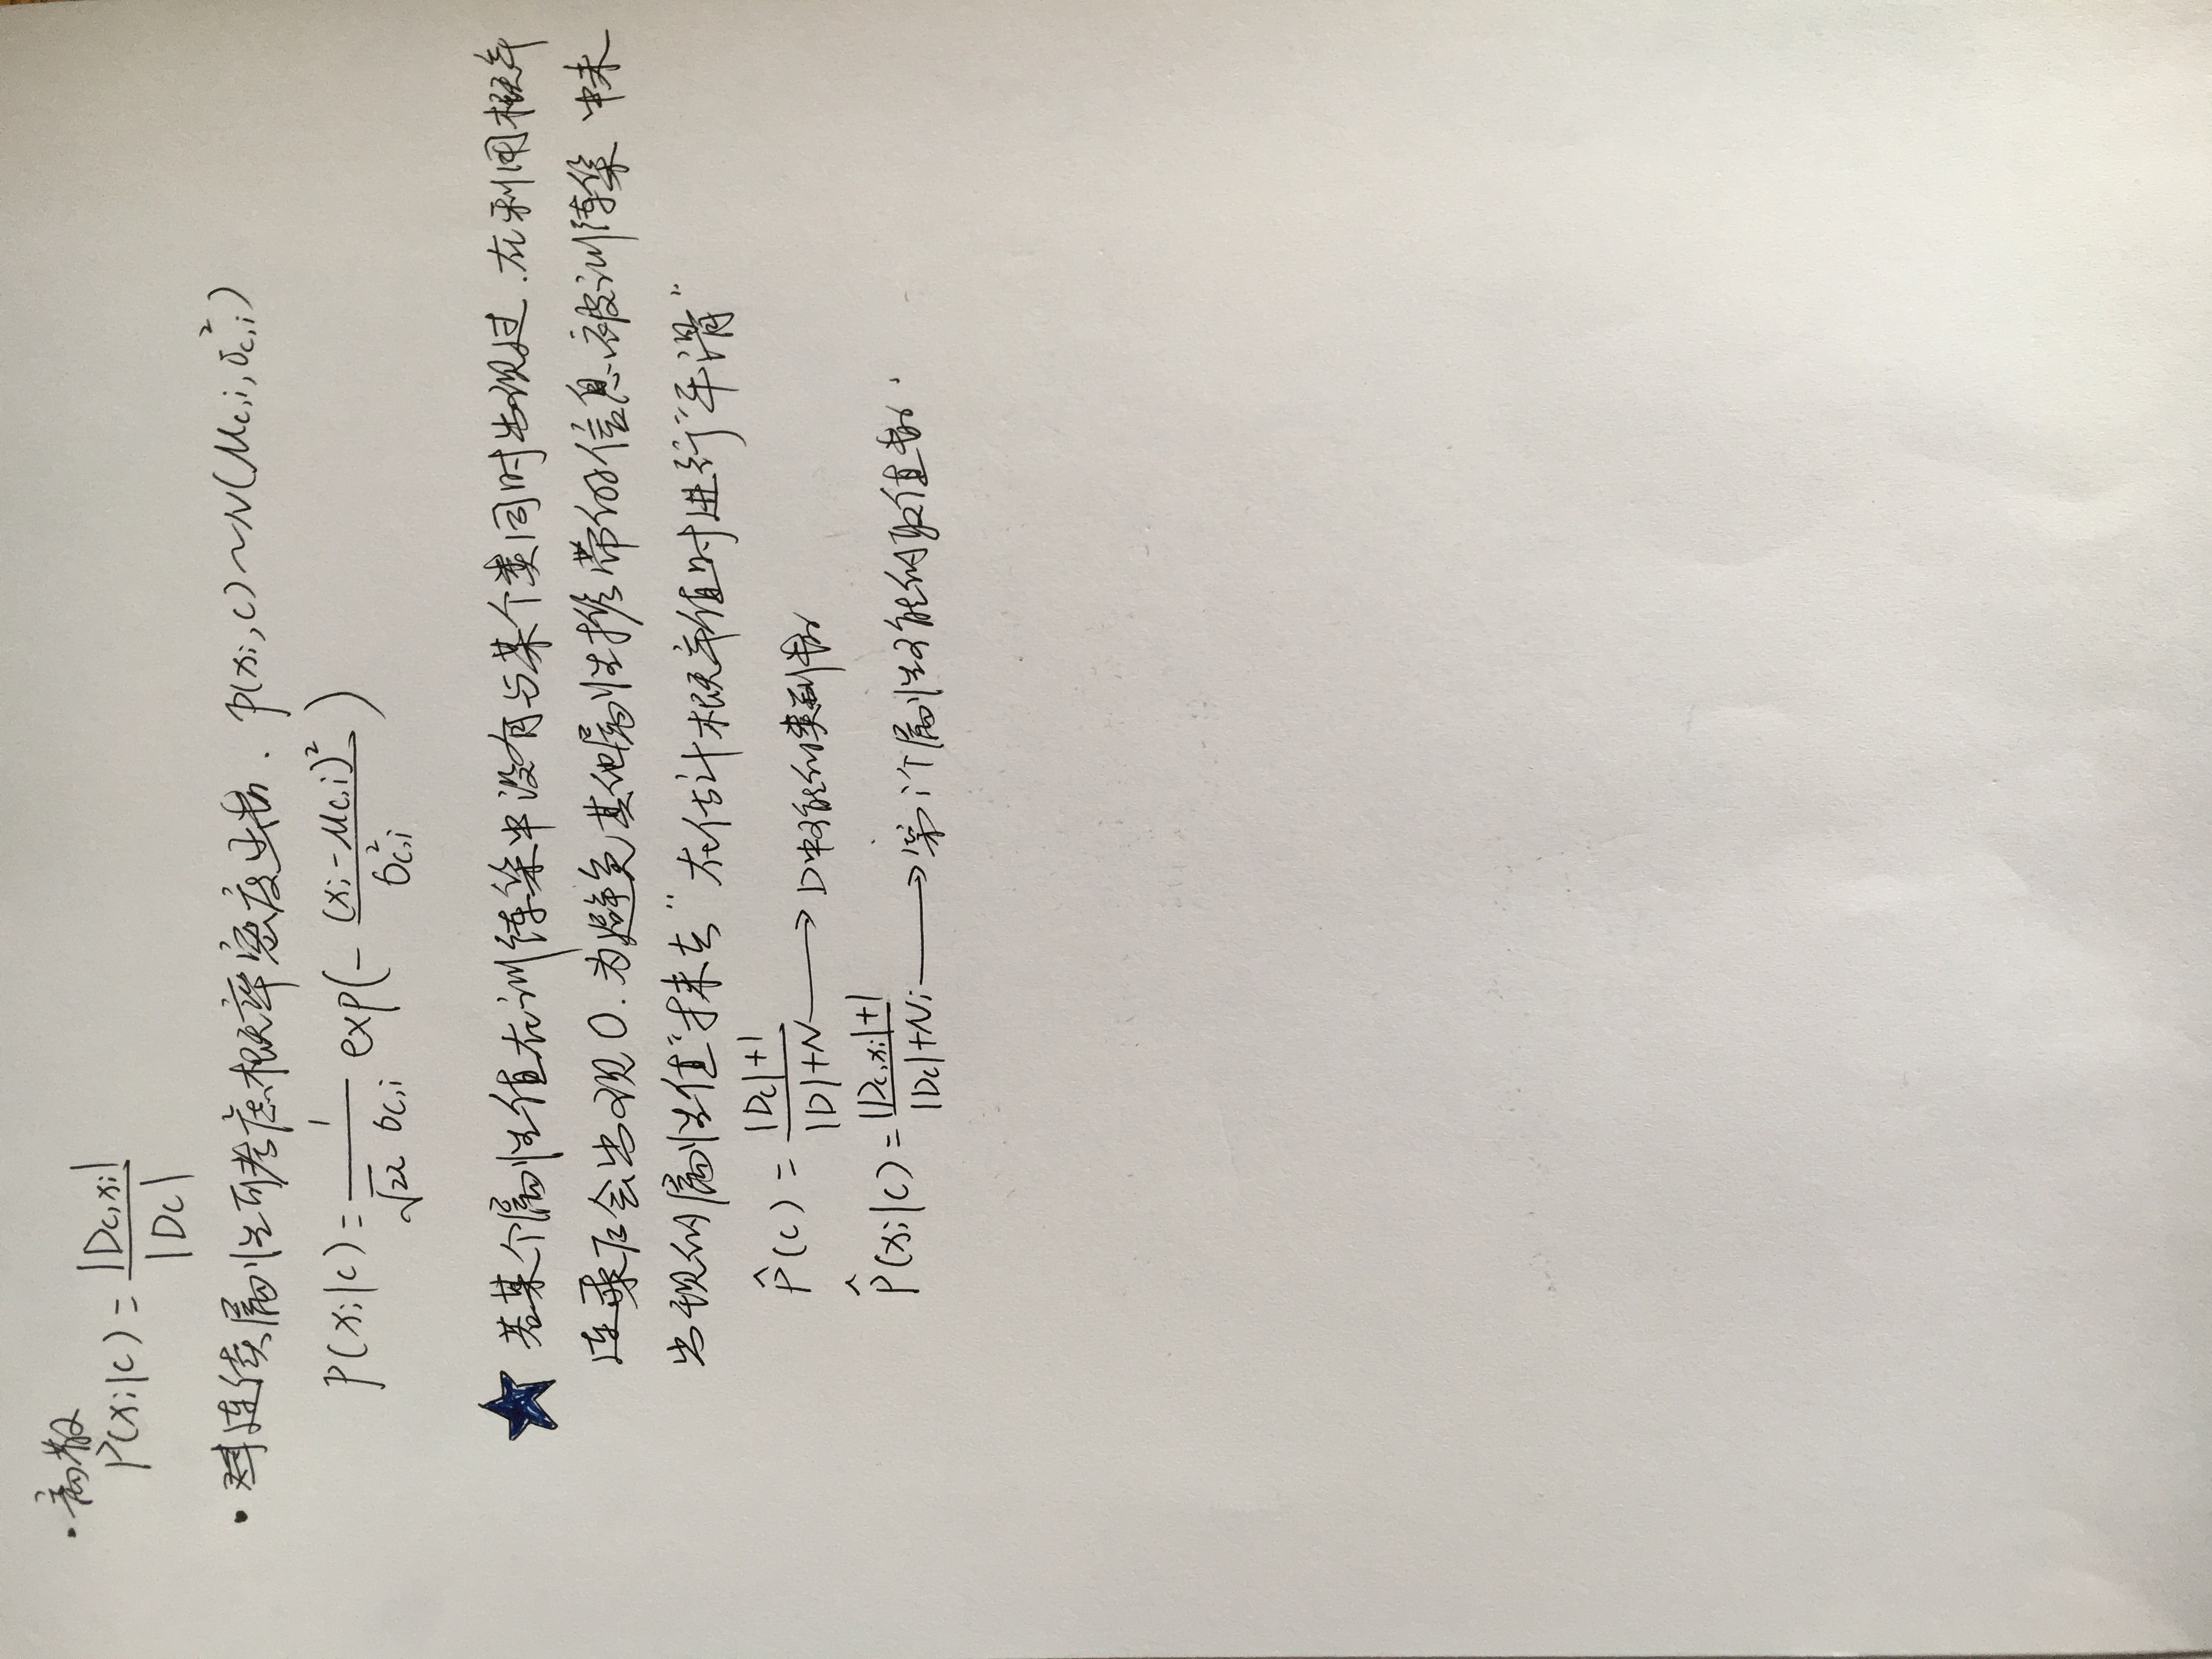 ·离散
P(xi|c) = |Dc,xi| / |Dc|
·对连续属性可考虑概率密度函数. p(xi,c)~N(μc,i,σ²c,i)
P(xi|c) = 1 / (√2π σc,i) exp(- (xi-μc,i)² / σ²c,i)
★ 若某个属性值在训练集中没有与某个类同时出现过.在利用概率
连乘后会出现0.为避免其他属性携带的信息被训练集中未
出现的属性值"抹去"在估计概率值时进行"平滑"
P̂(c) = |Dc|+1 / |D|+N → D中可能的类别数
P̂(xi|c) = |Dc,xi|+1 / |Dc|+Ni → 第i个属性可能的取值数.